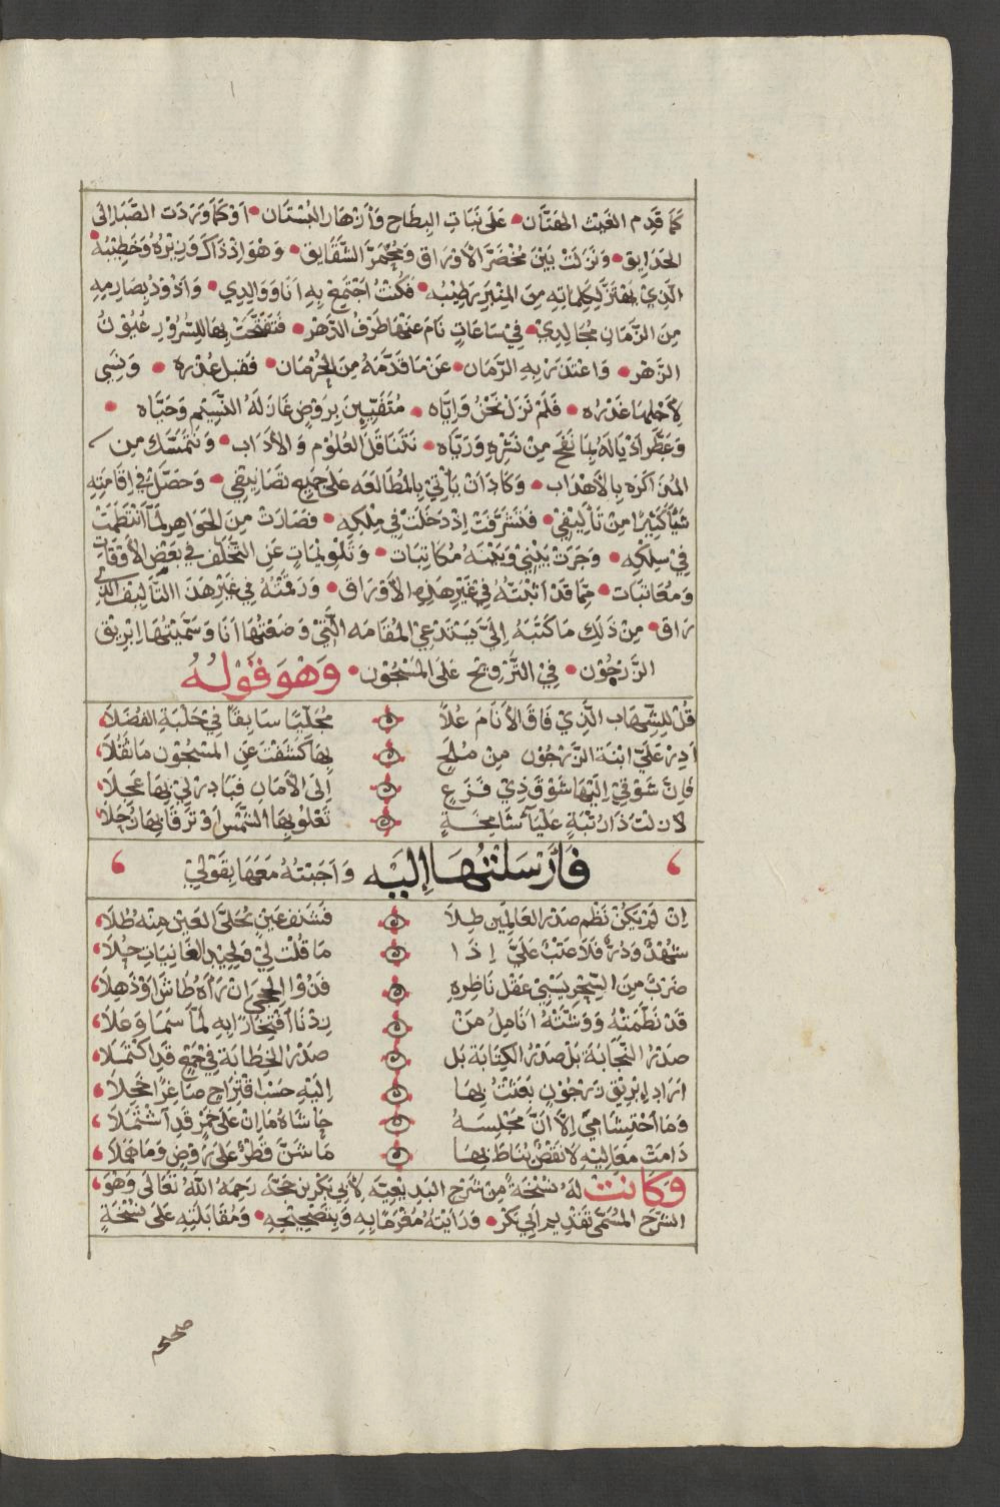 كَمَا قَدِم الغَيْث الهَتَّان • عَلَى نَبَاتِ البِطَاحِ وَأزْهَار البُسْتَان • اَوْ كَمَا وَرَدَت الصَّبَا اِلى
الحَدَايِق • وَنَزَلَتْ بَيْنَ مُخْضَرَّ الأوْرَاق وَمُحْمَرَّ الشَّقَايق • وَهْوَ اِذْ ذَاكَ وَزِيْرُهُ وَخَطِيْبُهُ •
الَّذِيْ يَهْتَزُّ لِكَلِمَاتِهِ مِنَ المِنْبَرِ رَطِيْبُه • فَكُنْتُ اَجْتَمِعُ بِهِ اَنَا وَوَالِدِي • وَاَذُوْدُ بِصَارِمِهِ
مِنَ الزَّمَانِ مُجَالِدِيْ • فِيْ سَاعَاتٍ نَامَ عَنْهَا طَرْفُ الدَّهْر • فَتَفَتَّحَتْ بِهَا لِلسُّرُوْرِ عُيُوْنُ
الزَّهْر • وَاعْتَذَرَ بِهِ الزَّمَان • عَنْ مَا قَدَّمَهُ مِنَ الحِرْمَان • فَقَبِلَ عُذْره • وَنَسِيَ
لِأجْلِهَا غَدْرَه • فَلَمْ نَزَلْ نَحْنُ وَاِيَّاه • مُتَفَيِّيِنَ بِرَوْضٍ غَازَلَهُ النَّسِيْم وَحَيَّاه •
وَعَطَّرَ اَذْيَالَهُ بِمَا نَفَحَ مِنْ نَشْرِهِ وَرَيَّاه • نَتَنَاقَلُ العُلُوْم وَالأدَاب • وَنَتَمَسَّك مِن
المُذَاكَرَه بِالأهْدَاب • وَكَادَ اَنْ يَأتِيْ بِالمُطَالَعَه عَلَى جَمِيْعِ تَصَانِيْفِي • وَحَصَّلَ فِي اِقَامَتِهِ
شَيْأ كَثِيْرًا مِنْ تَألِيْفِيْ • فَتَشَرَّفَتْ اِذْ دَخَلَتْ فِيْ مِلْكِه • فَصَارَتْ مِنَ الجَوَاهِرِ لَمَّا انْتَظَمَتْ
فِيْ سِلْكِه • وَجَرَتْ بَيْنِيْ وَبَيْنَهُ مُكَاتِبَات • وَتَلْوِيْحَاتٍ عَنِ التَّخَلُّف فِي بَعْضِ الأوْقَات
وَمُعَاتَبَات • مِمَّا قَدْ اَثْبَتُّهُ فِيْ غَيْرِ هَذِهِ الأوْرَاق • وَرَقَمْتُهُ فِيْ غَيْرِ هَذَا التَّالِيْف الذي
رَاق • مِنْ ذَلِكَ مَا كَتَبَهُ اِلَيَّ يَسْتَدْعِيْ المُقَامَه الَّتِيْ وَضَعْتُهَا اَنَا وَسَمَّيْتُهَا اِبْرِيْق
الزَّرَجُوْن • فِيْ التَّرْوِيْحِ عَلَى المَسْجُوْن • وَهْوَ قَوْلُهُ
قُلْ لِلشِّهَاب الَّذِيْ فَاقَ الأنَامَ عُلاً مُجَلِّيًا سَابِقًا فِيْ حَلْبَةِ الفُضَلَا
اَدِرْ عَلَيَّ ابْنَة الزَّرَجُوْن مِنْ مُلَحٍ بِهَا كَشَفْتَ عَنِ المَسْجُوْن مَا ثَقُلَا
فَاِنَّ شَوْقِيْ اِلَيْهَا شَوْقُ ذِيْ فَزَعٍ اِلَى الأمَانِ فَبَادِرْ لِيْ بِهَا عَجِلَا
لَا زِلْتَ ذَا رُتْبَةٍ عَلْيَآءَ شَامِخَةٍ تَعْلُو بِهَا الشَّمْسَ اَوْ تَرْقَا بِهَا زُحَلَا
فَأَرْسَلْتُهَا إِلَيْه وَاَجَبْتُهُ مَعَهَا بِقَوْلِيْ
اِنْ لَمْ يَكُنْ نَظْم صَدْر العَالِمِين طِلاً فَشَنفُ عَيْنٍ تُحَلِّيْ العَيْنَ مِنْه طُلَا
شُهْدٌ وَدُرٌّ فَلَا عَتْبٌ عَلَيَّ اِذَا مَا قُلْت لِيْ وَلِجِيْدِ الغَانِيَاتِ حُلَا
ضَرْبٌ مِنَ السِّحْرِ يَسْبِيْ عَقْل نَاظِرِهِ فَذُوْ الحِجَى اِنْ رَآهُ طَاشَ اَوْ ذَهِلَا
قَدْ نَظَمَتْهُ وَوَشَّتْهُ اَنَامِلُ مَنْ زِدْنَا افْتِخَارًا بِهِ لَمَّا سَمَا وَعَلَا
صَدْرُ النَّجَابَة بَلْ صَدْرُ الكِتَابَة بَل صَدْرُ الخِطَابَة فِيْ جَمْعٍ قَدِ اكْتَمَلَا
اَرَادَ اِبْرِيْق زَرْجُوْنٍ بَعَثْتُ بِهَا اِلَيْهِ حَسْبَ اقْتِرَاحٍ صَاغِرًا خَجِلَا
وَمَا احْتِشَامِيَ اِلَّا اَنَّ مَجْلِسَهُ حَاشَاهُ مَا اِنْ عَلَى خَمْرٍ قَدِ اشْتَمَلَا
دَامَتْ مَعَالِيْهِ لَا نَقْصٌ يُنَاطَ بِهَا مَا شَنَّ قَطْرٌ عَلَى رَوْضٍ وَمَا هَمَلَا
وَكَانَتْ لَهُ نُسْخَةٌ مِنْ شَرْحِ البَدِيْعِيَّه لِأبِي بَكْر بن حَجَّه رَحِمَهُ اللَّهُ تَعَالَى وَهْوَ
الشَّرْحَ المُسَمَّى تَقْدِيْم اَبِي بَكْر • وَرَاَيْتُهُ مُغْرَمًا بِهِ وَبِتَصْحِيْحِهِ • وَمُقَابَلَتِهِ عَلَى نُسْخَةٍ
صحح